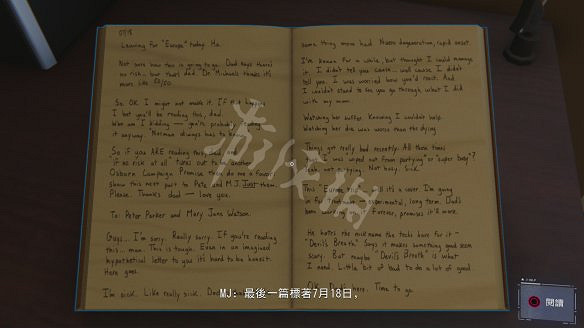 07/18
Leaving for "Europe" today. Ha.
Not sure how this is going to go. Dad says there's
no risk... but that's dad. Dr. Michaels thinks it's
more like 50/50.
So. OK. I might not make it. If that happens
I bet you'll be reading this, dad.
Who am I kidding — you're probably reading
it anyway. "Norman always has to know."
So if you ARE reading this, dad, and
"if no risk at all" turns out to be another
Osborn Campaign Promise then do me a favor
show this next part to Pete and MJ. Just them.
Please. Thanks dad — love you.
To: Peter Parker and Mary Jane Watson.
Guys... I'm sorry. Really sorry. If you're reading
this... man. This is tough. Even in an imagined
hypothetical letter to you it's hard to be honest.
Here goes.
I'm sick. Like really sick.
same thing mom had. Neuro degeneration, rapid onset.
I've known for a while, but thought I could manage
it. I didn't tell you cause... well cause I didn't
tell you. I was worried how you'd react. And
I couldn't stand to see you go through what I did
with my mom.
Watching her suffer. Knowing I couldn't help.
Watching her die was worse than the dying.
Things got really bad recently. All those times
I was wiped out from partying or "super busy"?
Yeah, not partying. Not busy. Sick.
This "Europe trip"... it's a cover. I'm going
in for treatment. Experimental, long term. Dad's
been working forever, promises it'll work.
He hates the nickname the techs have for it —
"Devil's Breath." Says it makes something good seem
scary. But maybe "Devil's Breath" is what
I need. Little bit of bad to do a lot of good.
OK. Dad's here. Time to go.
游侠网
MJ: 最後一篇標著7月18日,
閱讀